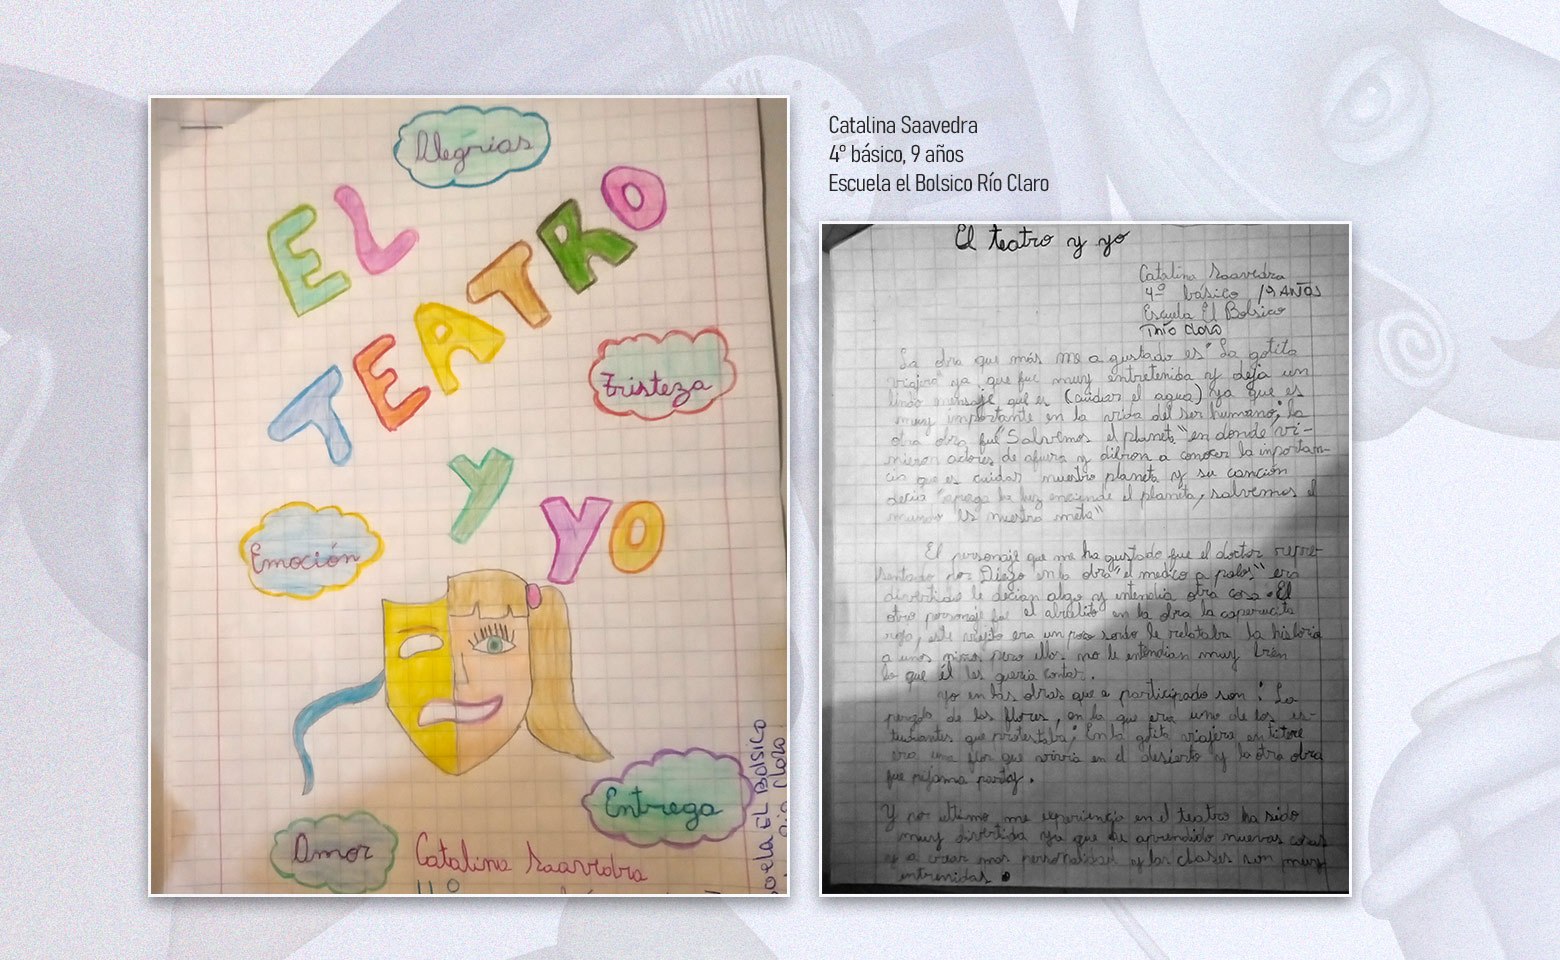 Alegrías
EL
TEATRO
Tristeza
Y
YO
Emoción
Entrega
Amor
Catalina Saavedra
Catalina Saavedra
4° básico, 9 años
Escuela el Bolsico Río Claro
El teatro y yo
Catalina Saavedra
4º básico /9 AÑOS
Escuela El Bolsico
Río Claro
La obra que más me a gustado es "La gotita
viajera" ya que fue muy entretenida y deja un
lindo mensaje que es (cuidar el agua) ya que es
muy importante en la vida del ser humano; la
otra obra fue "Salvemos el planeta" en donde vi-
nieron actores de afuera y dieron a conocer la inportan-
cia que es cuidar nuestro planeta y su canción
decia "apaga la luz enciende el planeta, salvemos el
mundo es nuestra meta"
El personaje que me ha gustado fue el doctor repre-
sentado por Diego en la obra "el medico a palos" era
divertido le decian algo y intendia otra cosa. El
otro personaje fue el abuelito en la obra la caperucita
roja, este viejito era un poco sordo le relataba la historia
a unos niños pero ellos no le entendian muy bien
lo que el les queria contar.
Yo en las obras que e participado son: La
pergola de las flores, en la que era uno de los es-
tudiantes que protestaba; En la gotita viajera en titere
era una flor que vivia en el desierto y la otra obra
fue pijama party.
Y por ultimo me experiencia en el teatro ha sido
muy divertida ya que he aprendido nuevas cosas
y a crear mas personalidad y las clases son muy
entrenidas.